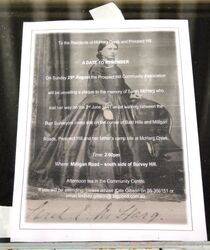 To the Residents of McHarg Creek and Prospect Hill
A DATE TO REMEMBER
On Sunday 29th August the Prospect Hill Community Association
will be unveiling a plaque to the memory of Sarah McHarg who
lost her way on the 3rd June 1841 whilst walking between the
Burr Surveyors camp site on the corner of Bull Hills and Milligan
Roads, Prospect Hill and her father's camp site at McHarg Creek.
Time: 2:00pm
Where: Milligan Road – south side of Survey Hill.
Afternoon tea in the Community Centre
If you will be attending, please advise Kate Gibson on
or email
McHarg.